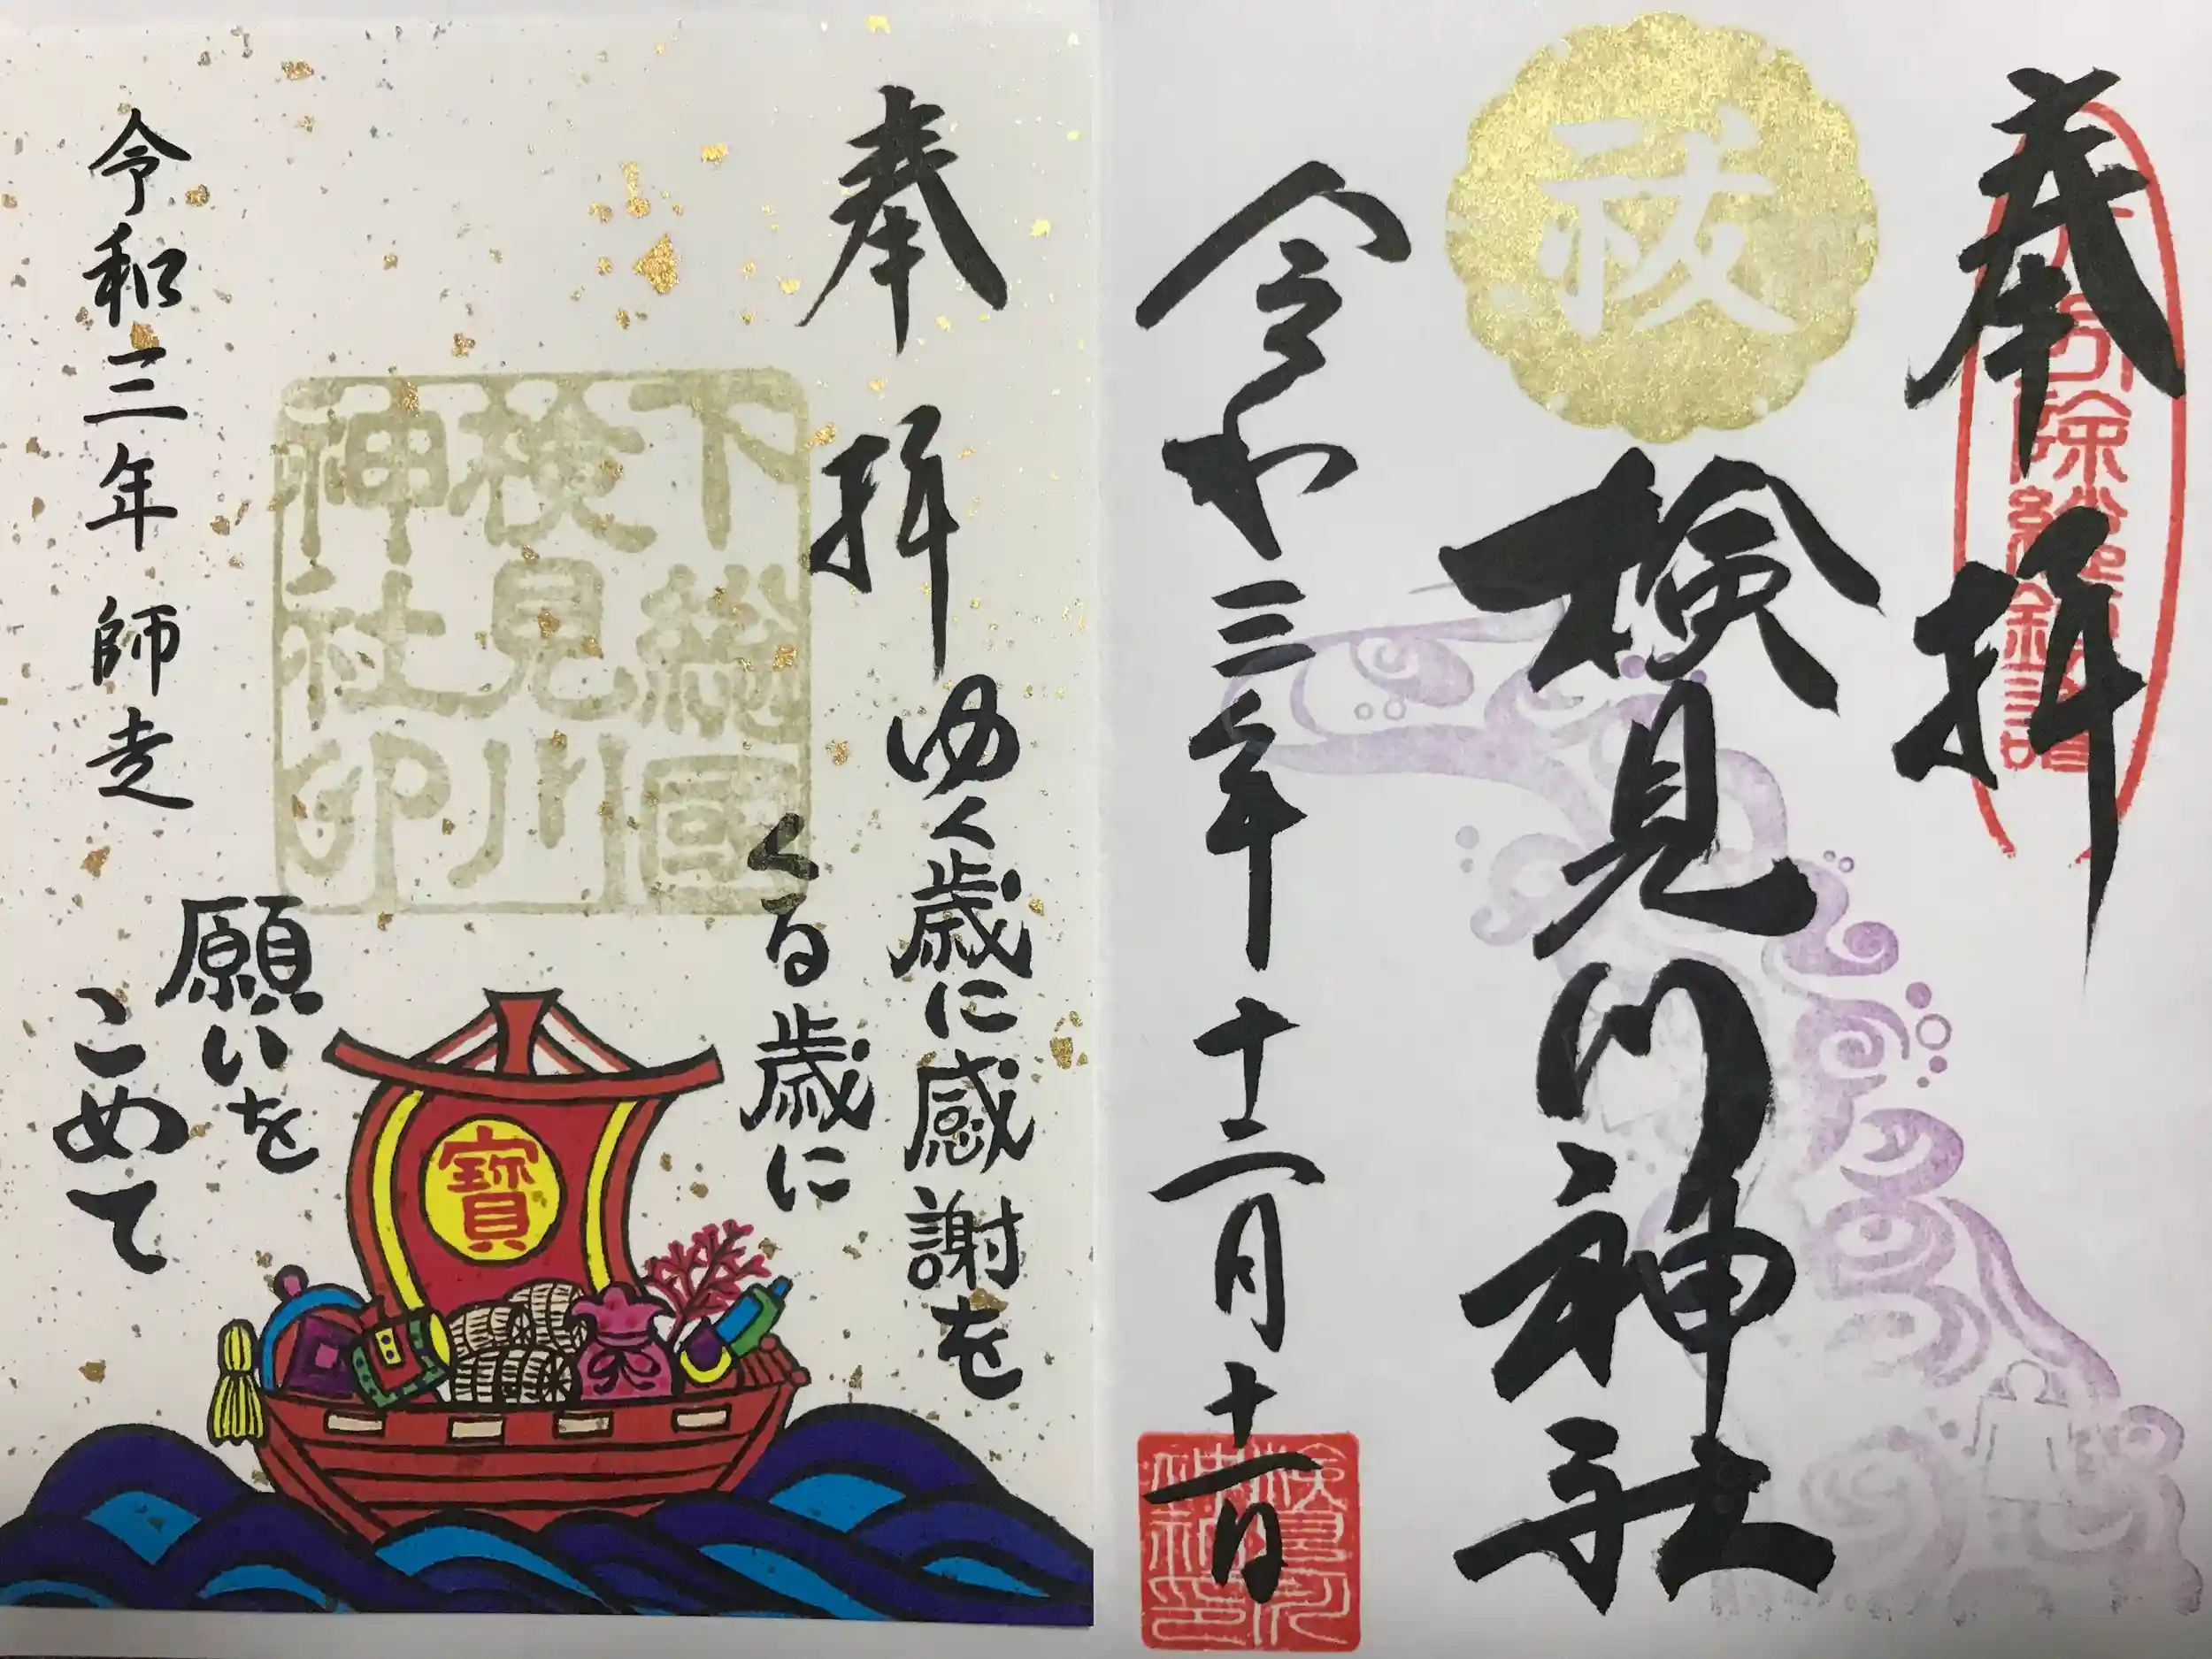 奉拝
祓
検見川神社
令和三年十二月十一日
検見川神社印
奉拝
ゆく歳に感謝を
くる歳に
願いを
こめて
下総國
検見川
神社印
寶
令和三年 師走